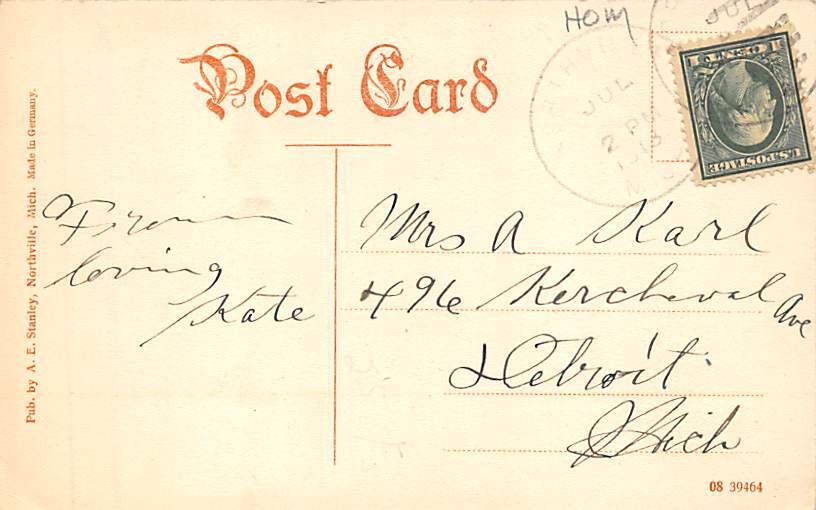 HOM
Post Card
JUL
JUL
2 PM
1913
1 CENT 1
U.S. POSTAGE
Pub. by A. E. Stanley, Northville, Mich. Made in Germany.
From
loving
Kate
Mrs A Karl
496 Kercheval Ave
Detroit
Mich
08 39464